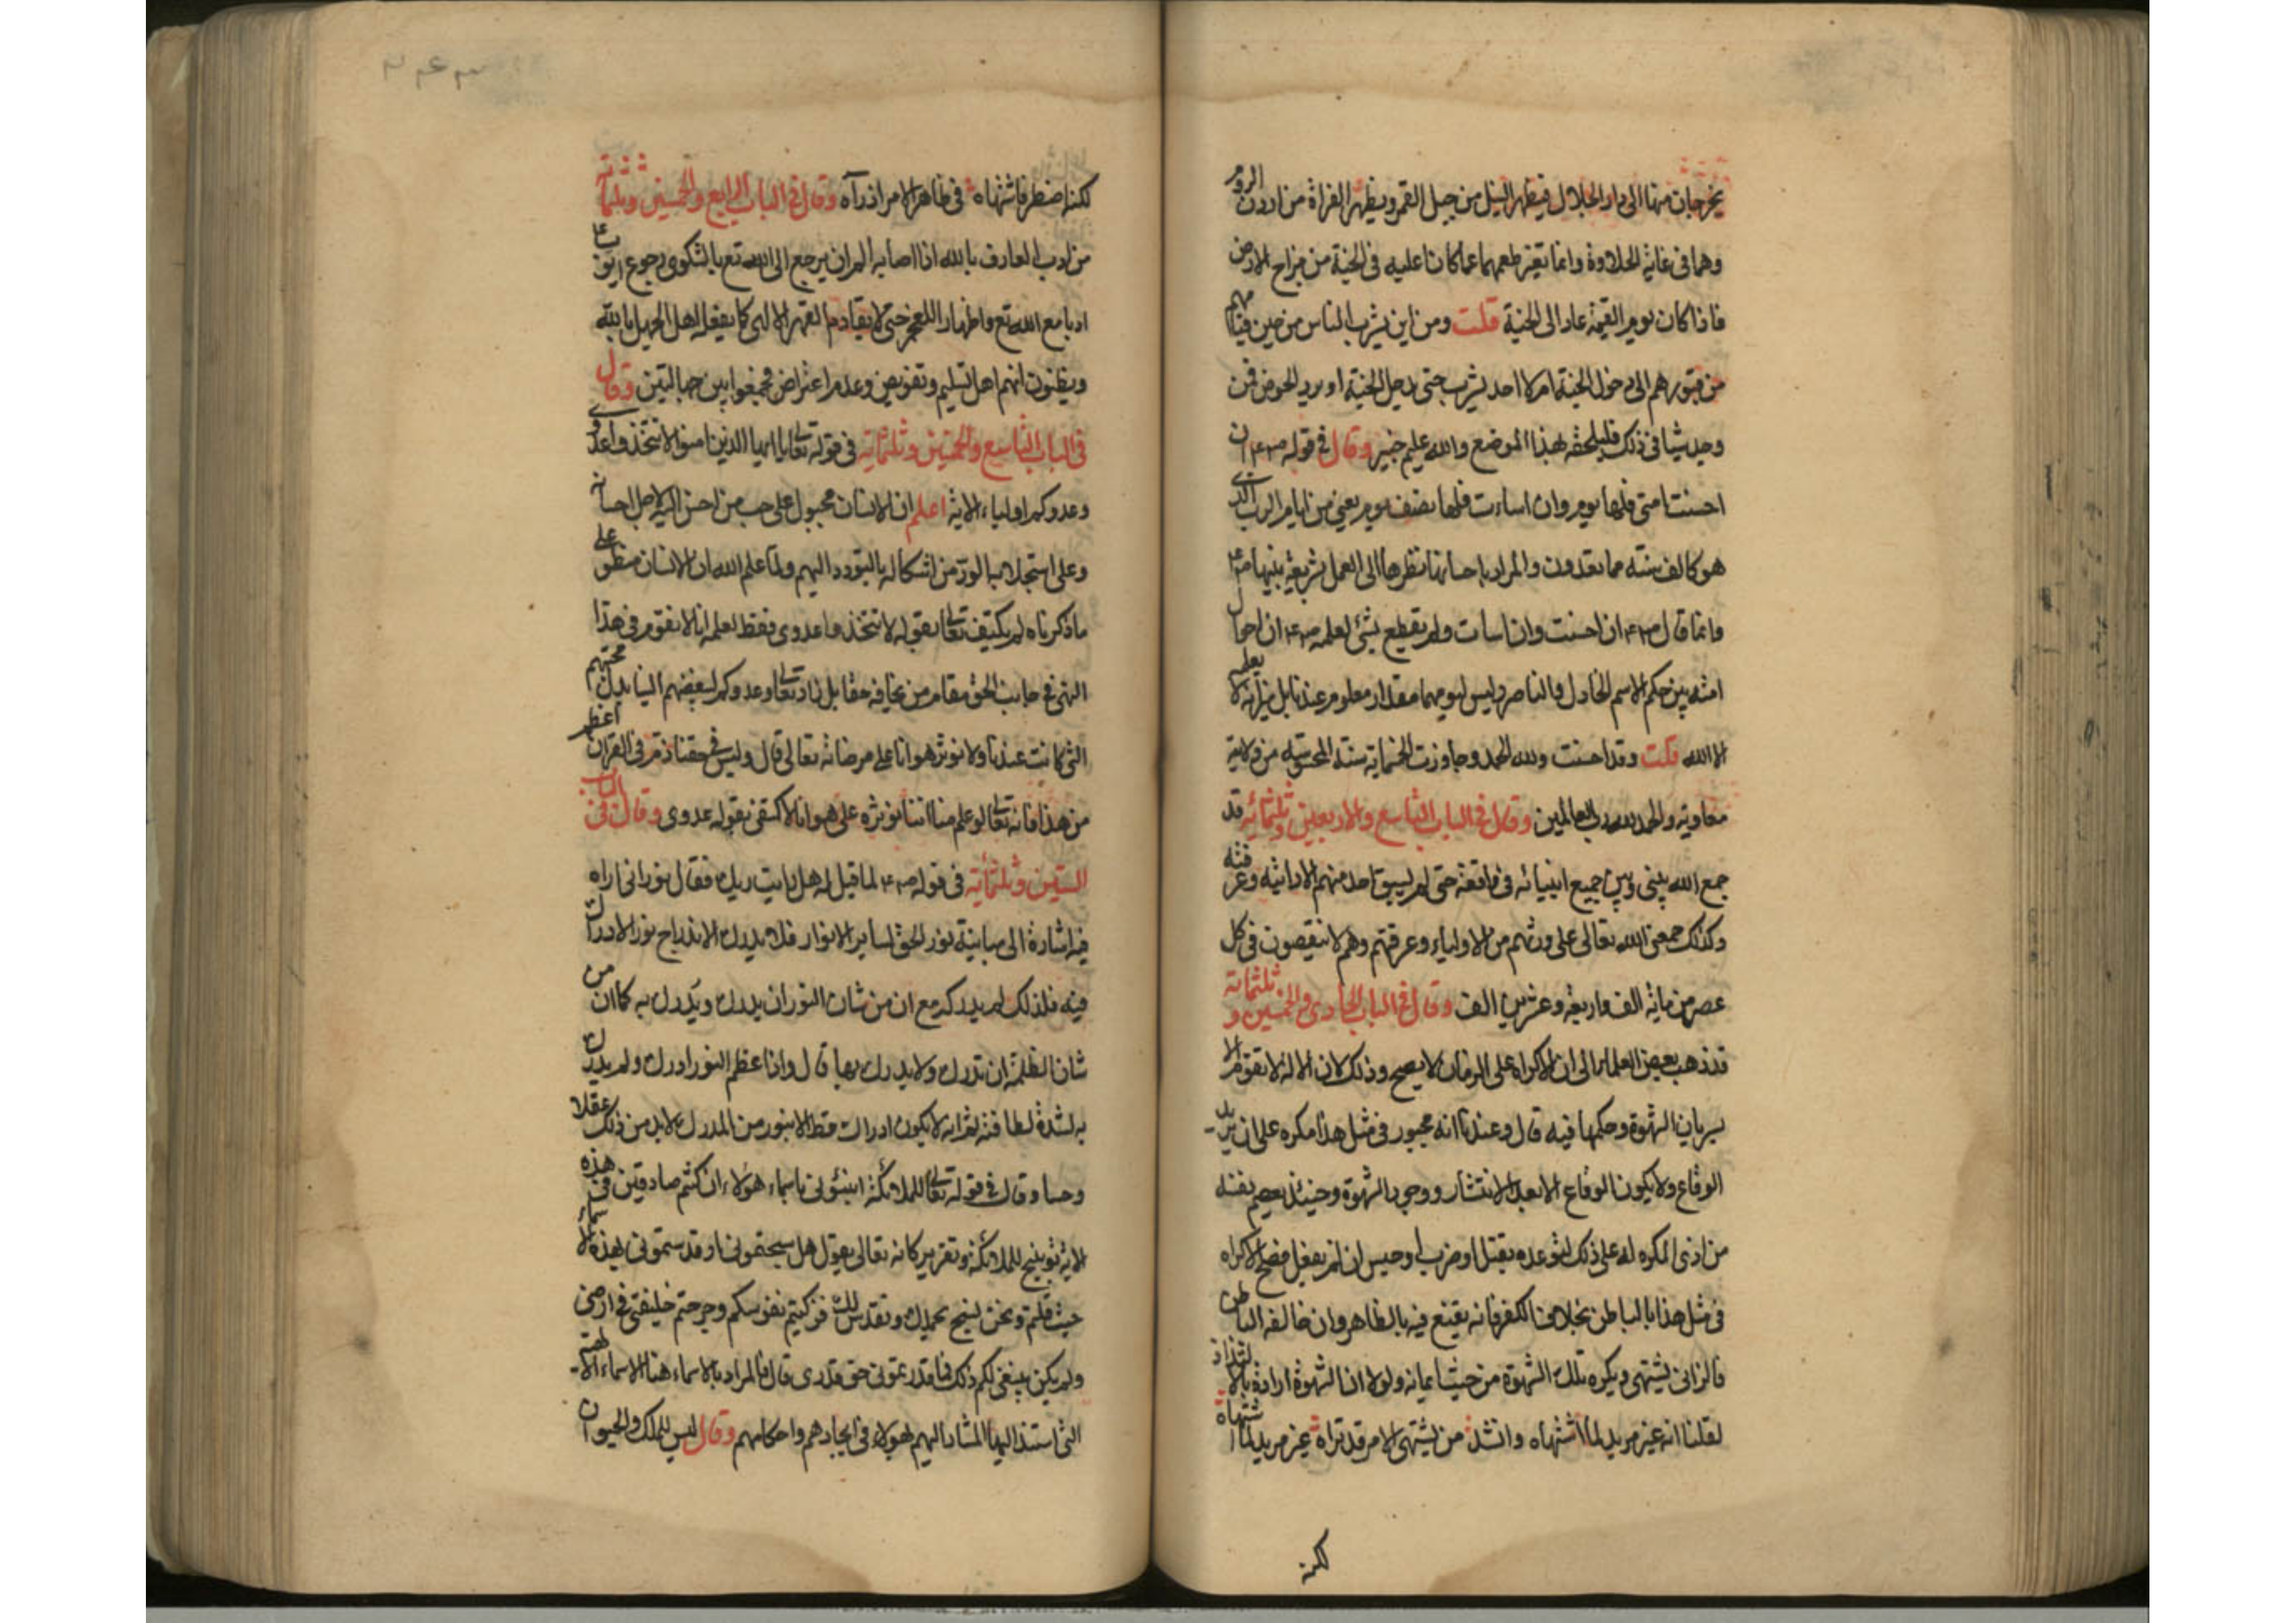 يخرجان منها الى دار الجلال فيظهر النيل من جبل القمر ويظهر الفراة من اردن الروم
وهما فى غاية الحلاوة وانما تغير طعمهما عما كانا عليه فى الجنة من مزاج الارض
فاذا كان يوم القيمة عاد الى الجنة قلت ومن اين يشرب الناس من حين قيامهم
من قبورهم الى دخول الجنة ام لا احد يشرب حتى يدخل الجنة او يرد الحوض فمن
وجد شيا فى ذلك فليلحقه بهذا الموضع والله عليم خبير وقال فى قوله صعم ان
احسنت امتى فلها يوم وان اساءت فلها نصف يوم يعنى من ايام الرب الذى
هو كالف سنة مما تعدون والمراد باحسانها نظرها الى العمل بشريعة نبيها صعم
وانما قال صعم ان احسنت وان اسات ولم يقطع بشئ لعلمه صعم ان احوال
امته بين حكم الاسم الخاذل والناصر وليس ليومهما مقدار معلوم عندنا بل ميزانه لا يعلمه
الا الله قلت وقد احسنت ولله الحمد وجاوزت الخمماية سنة المحسوبة من ولاية
معاوية والحمد لله رب العالمين وقال فى الباب التاسع والاربعين وثلثمائة قد
جمع الله بينى وبين جميع انبيائه فى واقعة حتى لم يبق احد منهم الا رايته وعرفته
وكذلك جمعنى الله تعالى على ورثتهم من الاولياء وعرفتهم وهم لا ينقصون فى كل
عصر من ماية الف واربعة وعشرين الف وقال فى الباب الحادى والخمسين و ثلثماتة
قد ذهب بعض العلماء الى ان الاكراه على الزنا لا يصح وذلك لان الالة لا تقوم الا
بسريان الشهوة وحكمها فيه قال وعندنا انه مجبور فى مثل هذا مكره على ان يريد
الوقاع ولا يكون الوقاع الا بعد الانتشار ووجود الشهوة وحينئذ يعصم نفسه
من اذى المكره له على ذلك لتوعده بقتل او ضرب او حبس ان لم يفعل فصح الاكراه
فى مثل هذا بالباطن بخلاف الكفر فانه يقنع فيه بالظاهر وان خالفه الباطن
فالزانى يشتهى ويكره تلك الشهوة من حيث ايمانه ولولا ان الشهوة ارادة بالالتذاذ
لقلنا انه غير مريد لما اشتهاه وانشد من يشتهى الامر قد تراه غير مريد لما اشتهاه
لكنه
لكنه اضطر فاشتهاه فى ظاهر الامر اذ رآه وقال فى الباب الرابع والخمسين وثلثماتة
من ادب العارف بالله اذا اصابه الم ان يرجع الى الله تع بالشكوى رجوع ايوب عم
ادبا مع الله تع واظهار اللعجز حتى لا يقاوم القهر الالهى كما يفعله اهل الجهل بالله
ويظنون انهم اهل تسليم وتفويض وعدم اعتراض فجمعوا بين جهالتين وقال
فى الباب التاسع والخمسين وثلثماية فى قوله تعالى يا ايها الذين امنوا لا تتخذوا عدوى
وعدوكم اولياء الاية اعلم ان الانسان مجبول على حب من احسن اليه لاجل احسانه
وعلى استجلاب الود من اشكاله بالتودد اليهم ولما علم الله ان الانسان منطو على
ما ذكرناه لم يكتف تعالى بقوله لا تتخذوا عدوى فقط لعلمه انا لا نقوم فى هذا
النهى فى جانب الحق مقام من يخافه حقا بل زاد تعالى وعدوكم لبغضهم الينا بدل محبتهم
التى كانت عندنا ولا نوثر هوانا على مرضاته تعالى قال وليس فى حقنا ذم فى القران اعظم
من هذا فانه تعالى لو علم منا اننا نوثره على هوانا لاكتفى بقوله عدوى وقال فى الباب
الستين وثلثماية فى قوله صعم لما قيل له هل رايت ربك فقال نورانى اراه
فيه اشارة الى مباينة نور الحق لساير الانوار فلا يدرك لاندراج نور الادراك
فيه فلذلك لم يدركه مع ان من شان النور ان يدرك ويدرك به كما ان من
شان الظلمة ان تدرك ولا يدرك بها قال واذا عظم النور ادرك ولم يدرك
به لشدة لطافته ثم انه لا يكون ادراك قط الا بنور من المدرك لا بد من ذلك عقلا
وحسا وقال فى قوله تعالى للملائكة انبئونى باسماء هؤلاء ان كنتم صادقين فى هذه
الاية توبيخ للملائكة وتقرير كانه تعالى يقول هل سبحتمونى او قدستمونى بهذه الاسماء
حيث قلتم ونحن نسبح بحمدك ونقدس لك فزكيتم نفوسكم وجرحتم خليفتى فى ارضى
ولم يكن ينبغى لكم ذلك فما قدرتمونى حق قدرى قال فالمراد بالاسماء هنا الاسماء الالهية
التى استند اليها المشار اليهم بهؤلاء فى ايجادهم واحكامهم وقال ليس للملك والحيوان